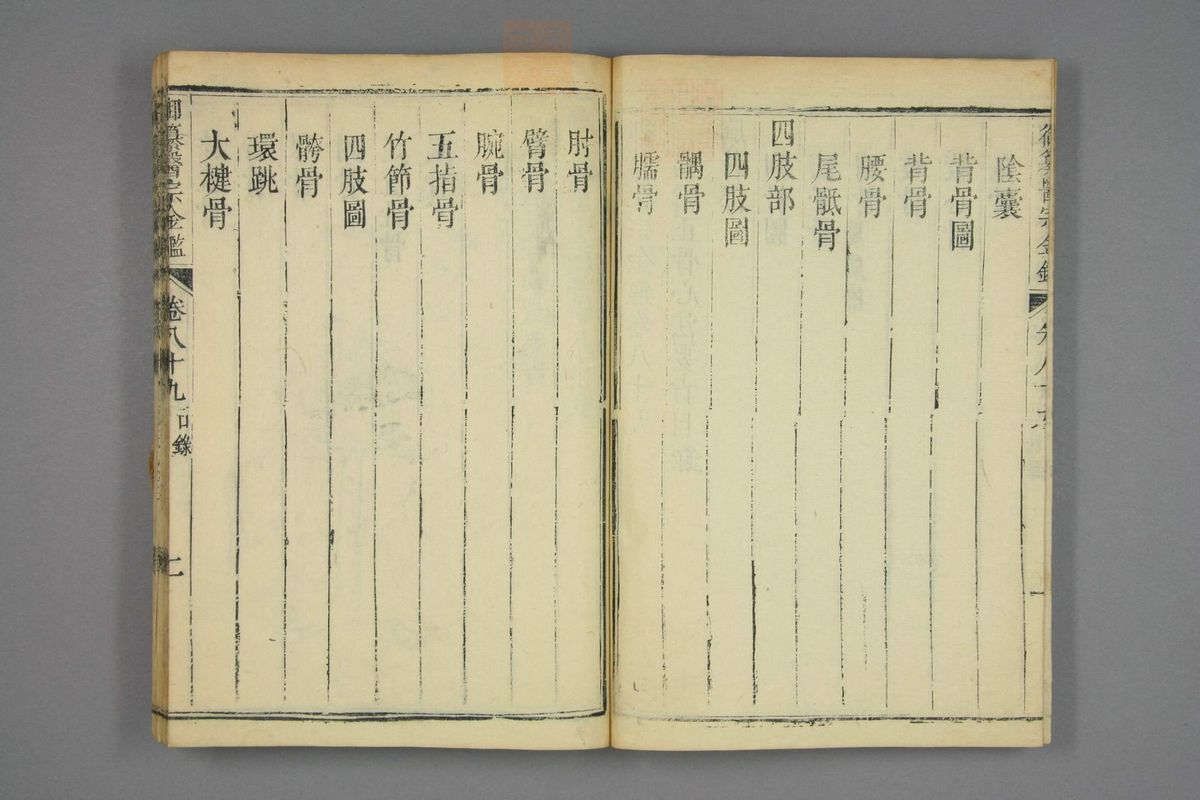 御纂醫宗金鑑 卷八十九 一
陰囊
背骨圖
背骨
腰骨
尾骶骨
四肢部
四肢圖
髃骨
臑骨
肘骨
臂骨
腕骨
五指骨
竹節骨
四肢圖
髈骨
環跳
大楗骨
御纂醫宗金鑑 卷八十九 目錄 二